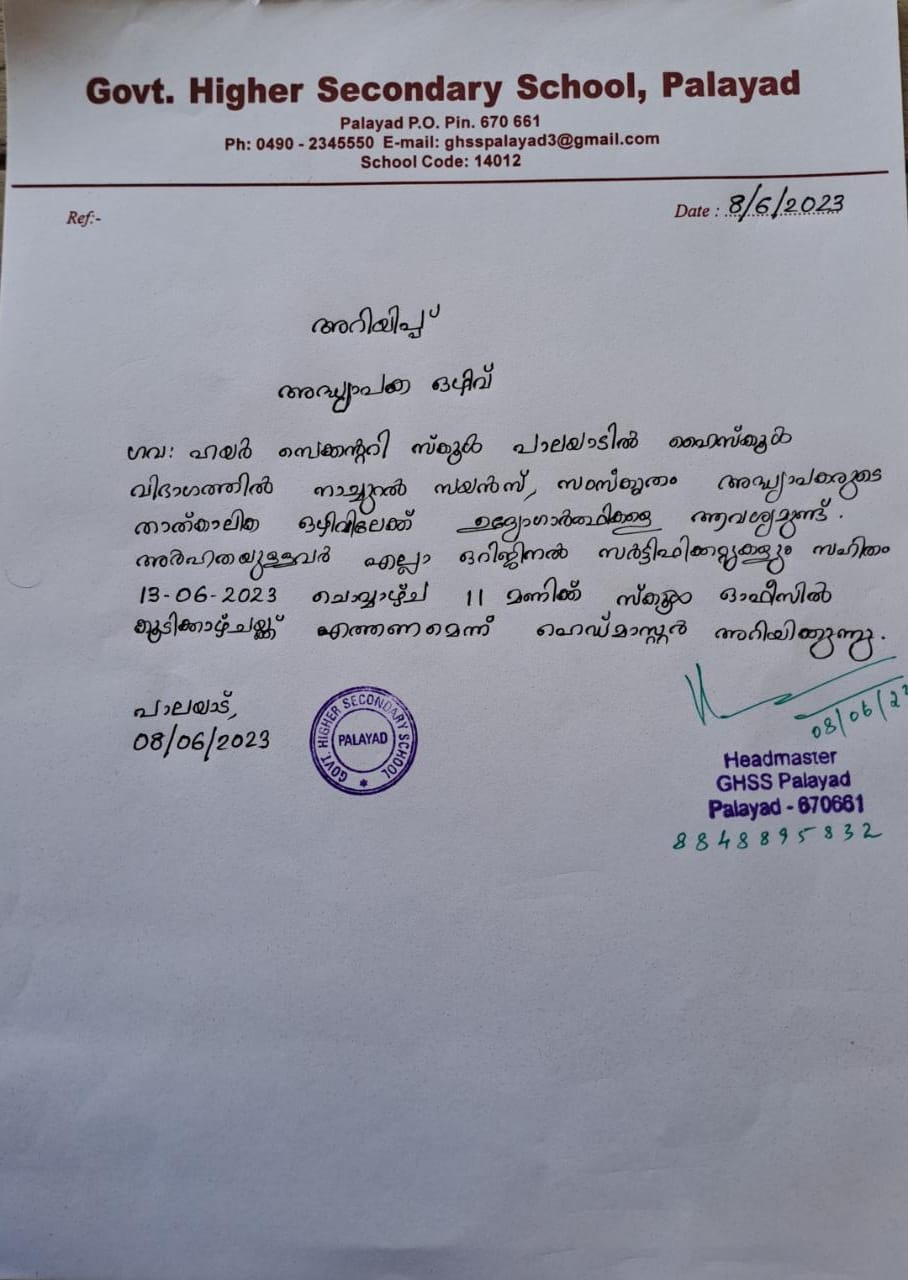 Govt. Higher Secondary School, Palayad
Palayad P.O. Pin. 670 661
Ph: 0490 - 2345550 E-mail: ghsspalayad3@gmail.com
School Code: 14012
Ref:-
Date : 8/6/2023
അറിയിപ്പ്
അദ്ധ്യാപക ഒഴിവ്
ഗവ: ഹയർ സെക്കന്ററി സ്കൂൾ പാലയാടിൽ ഹൈസ്കൂൾ
വിഭാഗത്തിൽ നാച്ചുറൽ സയൻസ്, സംസ്കൃതം അദ്ധ്യാപകരുടെ
താത്കാലിക ഒഴിവിലേക്ക് ഉദ്യോഗാർത്ഥികളെ ആവശ്യമുണ്ട്.
അർഹതയുള്ളവർ എല്ലാ ഒറിജിനൽ സർട്ടിഫിക്കറ്റുകളും സഹിതം
13-06-2023 ചൊവ്വാഴ്ച 11 മണിക്ക് സ്കൂൾ ഓഫീസിൽ
കൂടിക്കാഴ്ചയ്ക്ക് എത്തണമെന്ന് ഹെഡ്മാസ്റ്റർ അറിയിക്കുന്നു.
പാലയാട്,
08/06/2023
GOVT. HIGHER SECONDARY SCHOOL
PALAYAD
08/06/23
Headmaster
GHSS Palayad
Palayad - 670661
8848895832